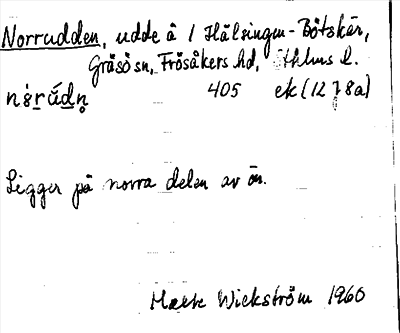 Norrudden, udde å 1 Hälsingen-Båtskär,
Gräsö sn, Frösåkers hd, Sthlms l.
405 ek (12 I 8a)
Ligger på norra delen av ön.
Wickström 1960